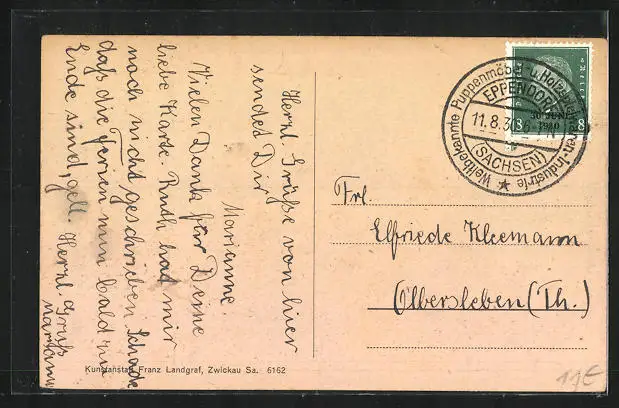 Herzl. Grüße von hier
sendet Dir
Marianne.
Vielen Dank für Deine
liebe Karte. Ruth hat mir
noch nicht geschrieben. Schade
daß die Ferien nun bald zu
Ende sind, gell. Herzl. Gruß
Mariann
Weltbekannte Puppenmöbel- u. Holz
en-Industrie
EPPENDORF
11.8.30
(SACHSEN)
30. JUNI
1930
8 8
Frl.
Elfriede Kleemann
Olbersleben (Th.)
Kunstanstalt Franz Landgraf, Zwickau Sa. 6162
11€